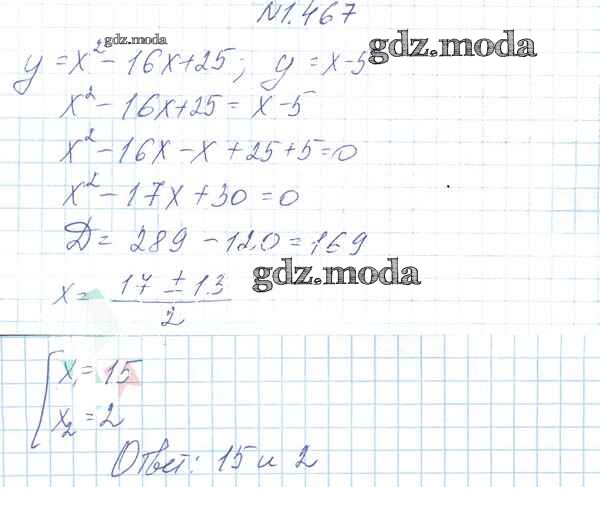 №1.467
gdz.moda
y = x² - 16x + 25; y = x - 5
gdz.moda
x² - 16x + 25 = x - 5
x² - 16x - x + 25 + 5 = 0
x² - 17x + 30 = 0
Д = 289 - 120 = 169
gdz.moda
x = (17 ± 13) / 2
x₁ = 15
x₂ = 2
Ответ: 15 и 2